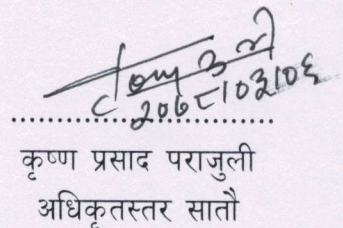 २०७८।०३।०६
कृष्ण प्रसाद पराजुली
अधिकृतस्तर सातौ